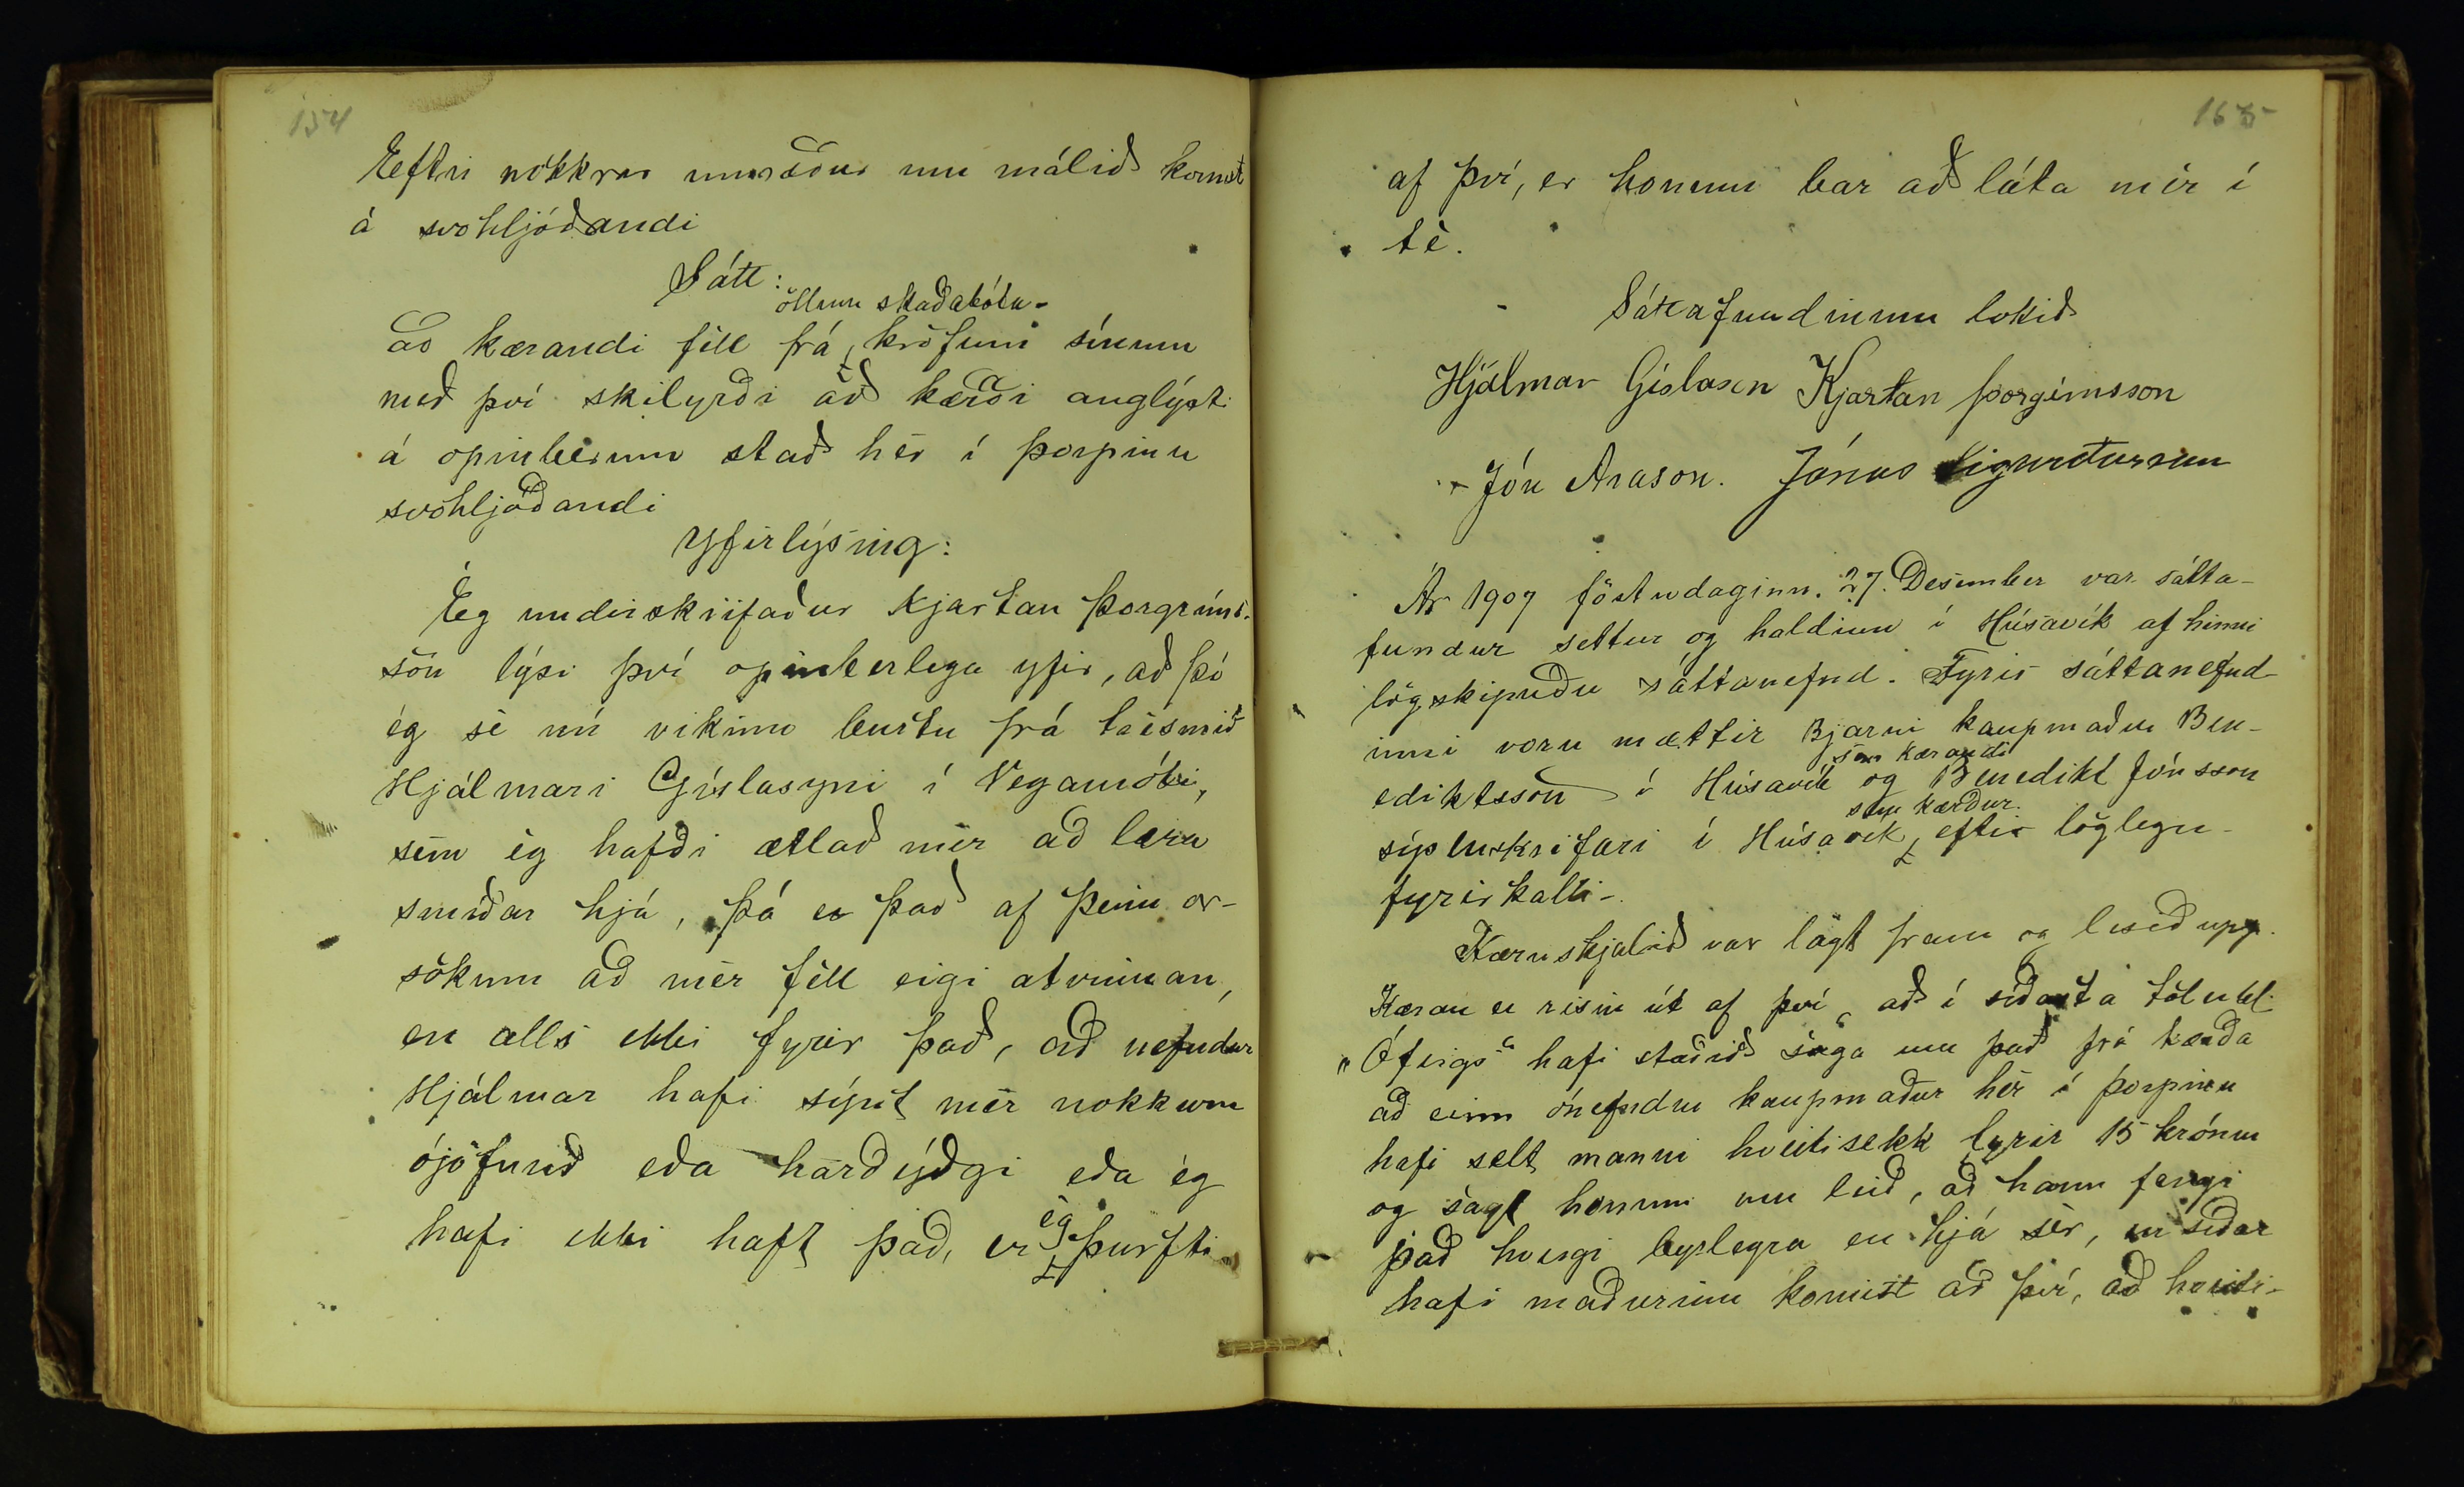 154
Eeftir nókkrar umræður um málið komst
á svohljóðandi
Sátt:
öllum skaðabóta-
að kærandi féll frá kröfum sínum
með því skilyrði að kærði auglýsti
á opinberum stað hér í þorpinu
svohljóðandi
Yfirlýsing:
Ég undirskrifaður Kjartan Þorgríms-
son lýsi því opinberlega yfir, að þó
ég sé nú vikinn burtu frá trésmið
Hjálmari Gíslasyni í Vegamóti,
sem ég hafði ætlað mér að læra
smíðar hjá, þá er það af þeim or-
sökum að mér féll eigi atvinnan,
en alls ekki fyrir það, að nefndur
Hjálmar hafi sýnt mér nokkurn
ójöfnuð eða harðýðgi eða ég
hafi ekki haft það, er ég þurfti
165
af því, er honum bar að láta mér í
té.
Sáttafundinum lokið
Hjálmar Gíslason Kjartan Þorgrímsson
Jón Arason. Jónas Sigurðsson
Ár 1907 föstudaginn. 27. Desember var sátta-
fundur settur og haldinn í Húsavík af hinni
lögskipuðu sáttanefnd. Fyrir sáttanefnd-
inni voru mættir Bjarni kaupmaður Ben-
sem kærandi
ediktsson í Húsavík og Benedikt Jónsson
sem kærður.
sýsluskrifari í Húsavík, eftir löglegu
fyrirkalli-.
Kæruskjalið var lagt fram og lesið upp.
Kæran er risin út af því, að í síðasta tölubl.
„Ófeigs“ hafi staðið saga um það frá kærða
að einn ónefndur kaupmaður hér í þorpinu
hafi selt manni hveitisekk fyrir 15 krónur
og sagt honum um leið, að hann fengi
það hvergi byrlegra en hjá sér, en síðar
hafi maðurinn komist að því, að hveiti-